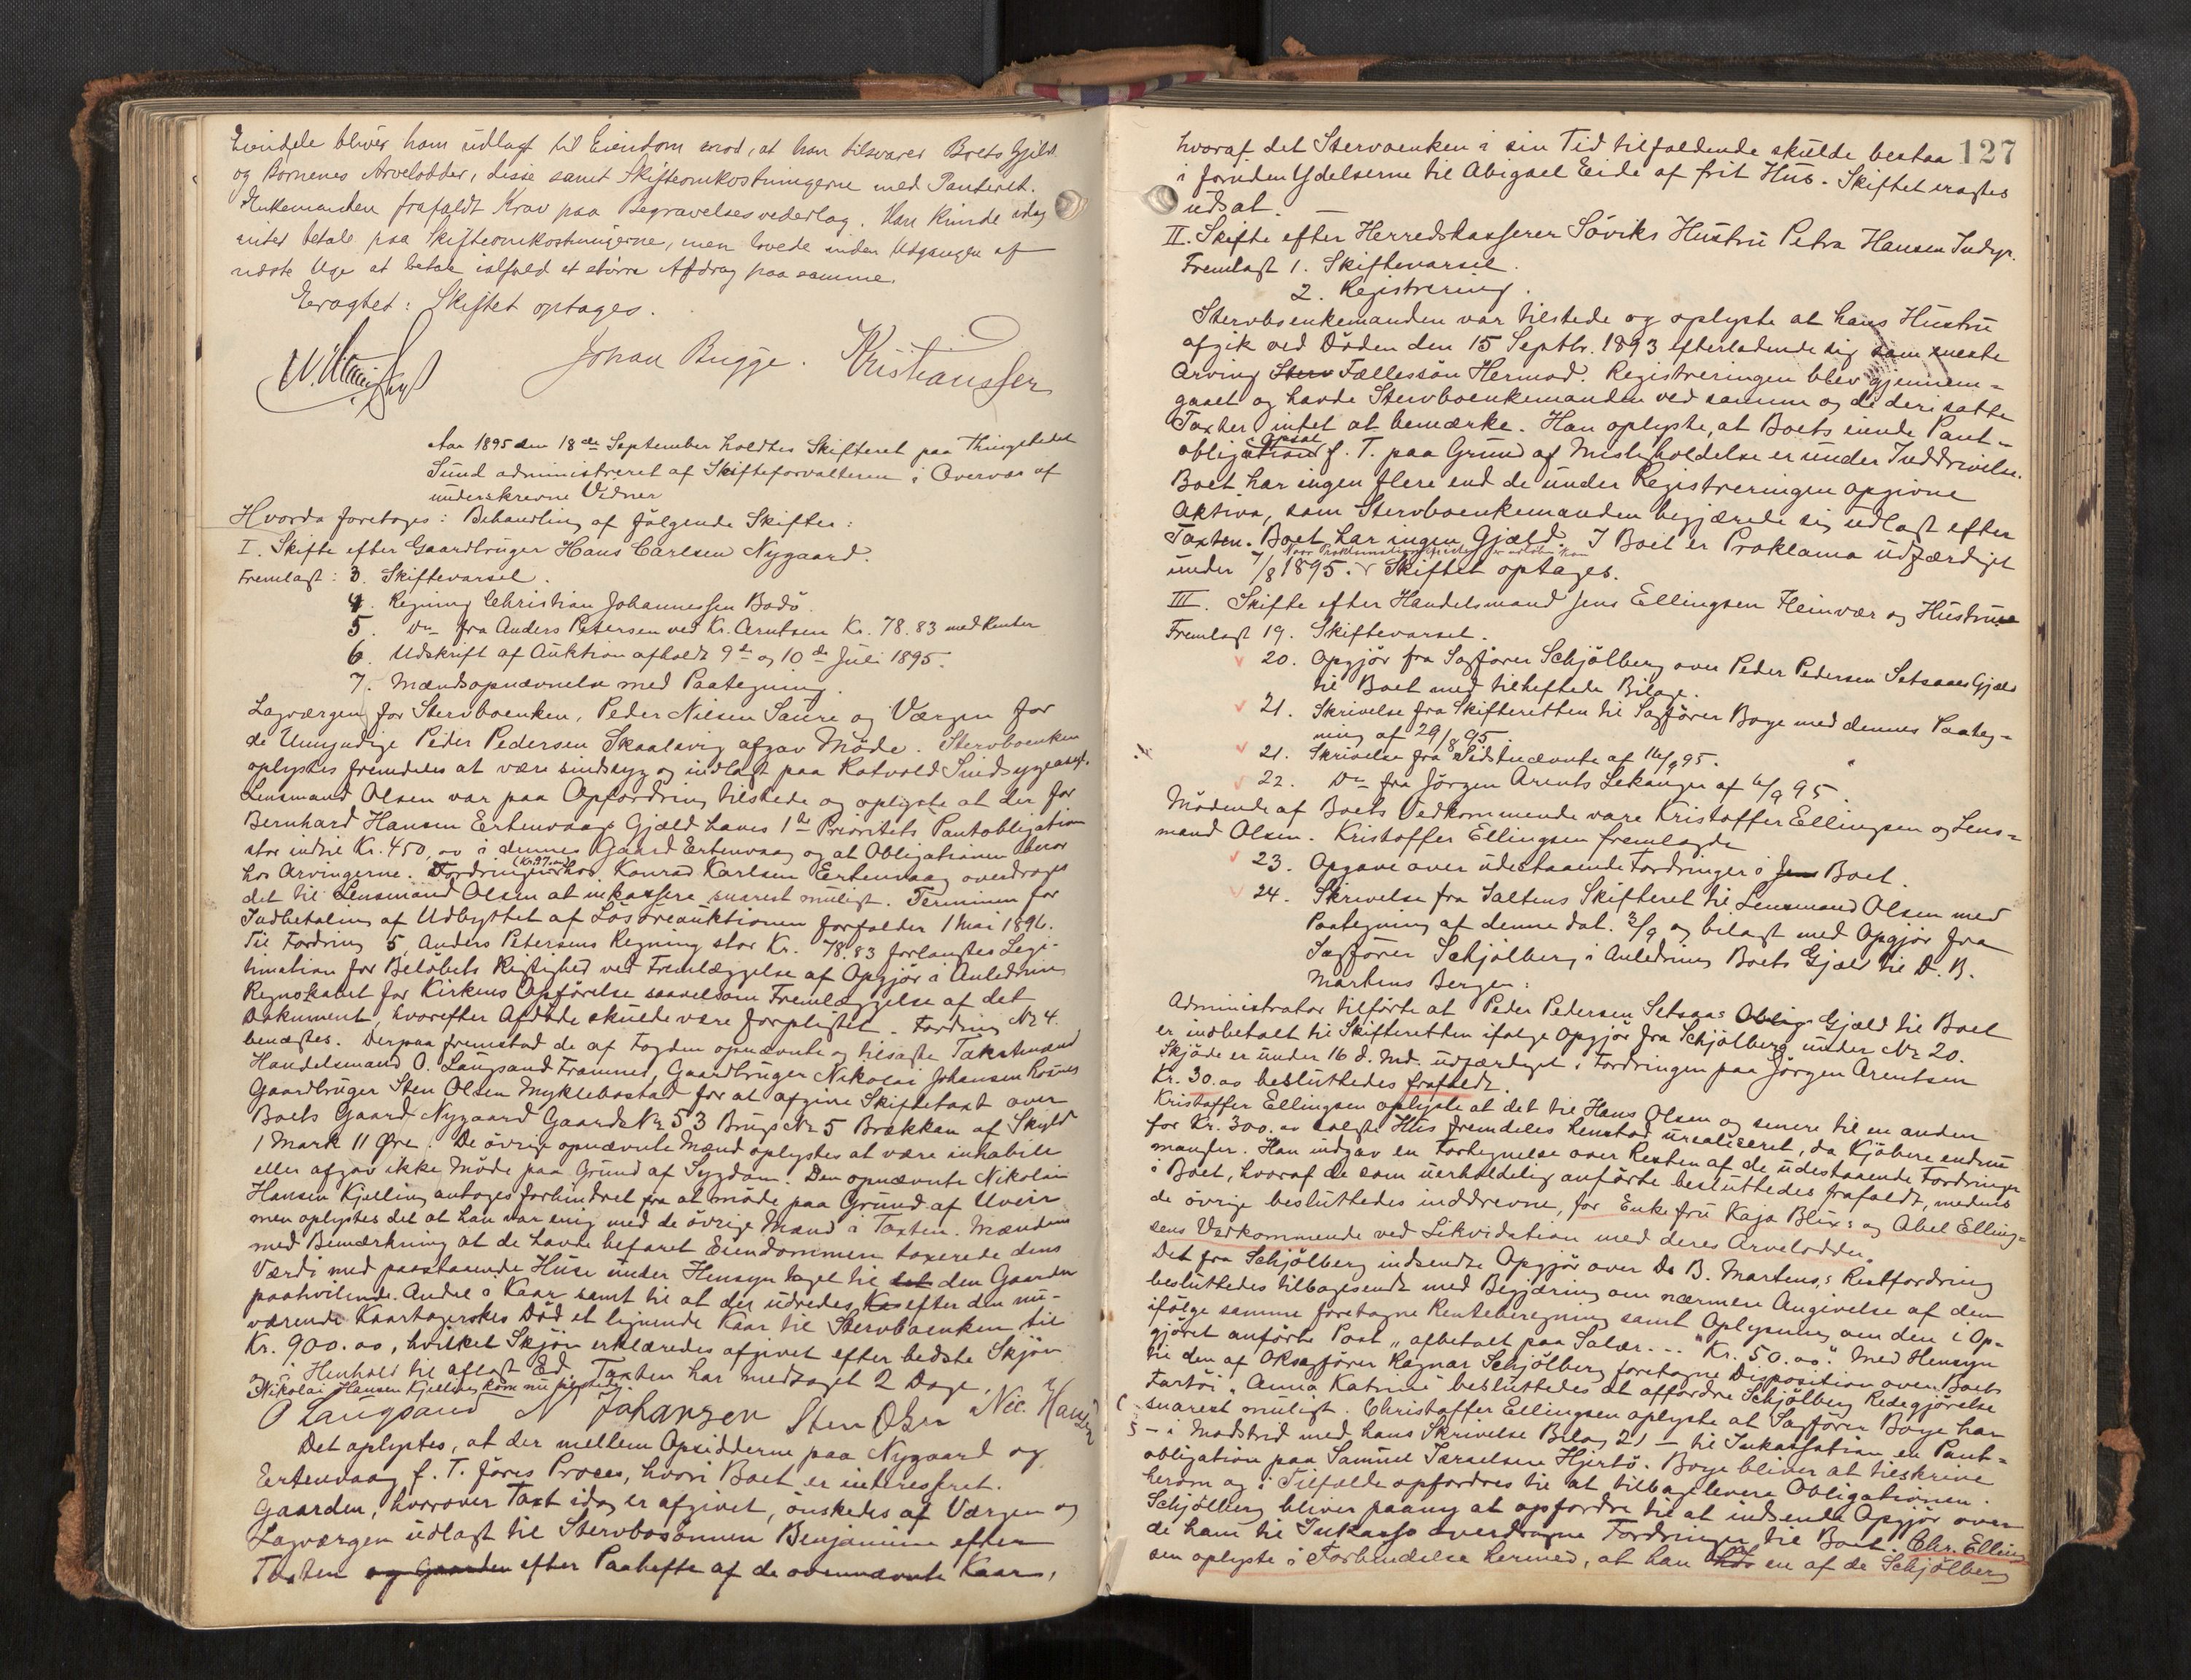 Eiendele bliver ham udlagt til Eiendom mod, at han tilsvarer Boets Gjæld
og Børnenes Arvelodder, disse samt Skifteomkostningerne med Panteret.
Enkemanden frafaldt Krav paa Begravelsesvederlag. Han kunde idag
intet betale paa Skifteomkostningerne, men lovede inden Udgangen af
næste Uge at betale ialfald et større Afdrag paa samme.
Eragtet: Skiftet optages.
Johan Bugge. Kristianssen
Aar 1895 den 18de September holdtes Skifteret paa Thingstedet
Sund administreret af Skifteforvalteren i Overvær af
underskrevne Vidner
Hvorda foretoges: Behandling af følgende Skifter:
I. Skifte efter Gaardbruger Hans Carlsen Nygaard.
Fremlagt: 3. Skiftevarsel.
4. Regning Christian Johannessen Bodø
5. Do fra Anders Petersen ved Kr. Arntsen Kr. 78.83 med Renter
6. Udskrift af Auktion afholdt 9de og 10de Juli 1895.
7. Mændsopnævnelse med Paategning.
Lagværgen for Stervboenken, Peder Nilsen Saure og Værgen for
de Umyndige Peder Pedersen Skaalsvig afgav Møde. Stervboenken
oplystes fremdeles at være sindssyg og indlagt paa Rotvold Sindsygeasyl.
Lensmand Olsen var paa Opfordring tilstede og oplyste at der for
Bernhard Hansen Ertenvaags Gjæld haves 1ste Prioritets Pantobligation
stor indtil Kr. 450,00 i dennes Gaard Ertenvaag og at Obligationen beror
hos Arvingerne. Fordringen hos Konrad Karlsen Ertenvaag overdrages
det til Lensmand Olsen at inkassere snarest muligt. Terminen for
Indbetaling af Udbyttet af Løsøreauktionen forfalder 1 Mai 1896.
Til Fordring 5, Anders Petersens Regning stor Kr. 78.83 forlangtes Legi-
timation for Beløbets Rigtighed ved Fremlæggelse af Opgjør i Anledning
Regnskabet for Kirkens Opførelse saavelsom Fremlæggelse af det
Dokument, hvorefter Afdøde skulde være forpligtet. Fordring Nr 4.
benægtes. Derpaa fremstod de af Fogden opnævnte og tilsagte Takstmænd
Handelsmand O. Langsand Framnes, Gaardbruger Nikolai Johansen Rosnes
Gaardbruger Sten Olsen Myklebostad for at afgive Skiftetaxt over
Boets Gaard Nygaard Gaards Nr 53 Brugs Nr 5 Brækkan af Skyld
1 Mark 11 Øre. De øvrige opnævnte Mænd oplystes at være inhabile
eller afgav ikke Møde paa Grund af Sygdom. Den opnævnte Nikolai
Hansen Kjelling antoges forhindret fra at møde paa Grund af Uveir
men oplystes det at han var enig med de øvrige Mænd i Taxten. Mændene
med Bemærkning at de havde befaret Eiendommen taxerede dens
Værdi med paastaaende Huse under Hensyn taget til det den Gaarden
paahvilende Andel i Kaar samt til at der udredes Ka efter den nu-
værende Kaartagerskes Død et lignende Kaar til Stervboenken til
Kr. 900.00, hvilket Skjøn erklæredes afgivet efter bedste Skjøn
og i Henhold til aflagt Ed. Taxten har medtaget 2 Dage.
Nikolai Hansen Kjelling kom nu tilstede
O Langsand N Johansen Sten Olsen Nic. Hansen
Det oplystes, at der mellem Opsidderne paa Nygaard og
Ertenvaag f. T. føres Proces, hvori Boet er interesseret.
Gaarden, hvorover Taxt idag er afgivet, ønskedes af Værgen og
Lagværgen udlagt til Stervbosønnen Benjamin efter
Taxten og Gaarden efter Paahefte af de ovennævnte Kaar,
127
hvoraf det Stervoenken i sin Tid tilfaldende skulde bestaa
i foruden Ydelserne til Abigael Eide af frit Hus. Skiftet eragtes
udsat.
II. Skifte efter Herredskasserer Søviks Hustru Petra Hansen Indyr.
Fremlagt 1. Skiftevarsel.
2. Registrering.
Stervboenkemanden var tilstede og oplyste at hans Hustru
afgik ved Døden den 15 Septbr. 1893 efterladende sig som eneste
Arving Sterv Fællessøn Hermod. Registreringen blev gjennem-
gaaet og havde Stervboenkemanden ved samme og de deri satte
Taxter intet at bemærke. Han oplyste, at Boets eiende Pant-
obligation f. T. paa Grund af Misligholdelse er under Inddrivelse.
Boet har ingen flere end de under Registreringen opgivne
Aktiva, som Stervboenkemanden begjærede sig udlagt efter
Taxten. Boet har ingen Gjæld. I Boet er Proklama udfærdiget
under 7/8 1895. Skiftet optages.
III. Skifte efter Handelsmand Jens Ellingsen Fleinvær og Hustrue
Fremlagt 19. Skiftevarsel.
20. Opgjør fra Sagfører Schjølberg over Peder Pedersen Setsaas Gjæld
til Boet med tilheftede Bilage.
21. Skrivelse fra Skifteretten til Sagfører Boye med dennes Paateg-
ning af 29/8 95.
21. Skrivelse fra Sidstnævnte af 16/9 95.
22. Do fra Jørgen Arents Lekanger af 6/9 95.
Mødende af Boets Vedkommende vare Kristoffer Ellingsen og Lens-
mand Olsen. Kristoffer Ellingsen fremlagde
23. Opgave over udestaaende Fordringer i Jens Boet.
24. Skrivelse fra Saltens Skifteret til Lensmand Olsen med
Paategning af denne dat. 3/9 og bilagt med Opgjør fra
Sagfører Schjølberg i Anledning Boets Gjæld til D. B.
Martens Bergen:
Administrator tilførte at Peder Pedersen Setsaas Oblig. Gjæld til Boet
er indbetalt til Skifteretten ifølge Opgjør fra Schjølberg under Nr 20.
Skjøde er under 16 d. Md. udfærdiget. Fordringen paa Jørgen Arentsen
Kr. 30.00 besluttedes frafaldt.
Kristoffer Ellingsen oplyste at det til Hans Olsen og senere til en anden
for Kr. 300.00 solgte Hus fremdeles henstod urealiseret, da Kjøbere endnu
mangler. Han indgav en Fortegnelse over Resten af de udestaaende Fordringer
i Boet, hvoraf de som uerholdelig anførte besluttedes frafaldt, medens
de øvrige besluttedes inddrevne, for Enkefru Kaja Blix: og Abel Elling-
sens Vedkommende ved Likvidation med deres Arvelodder.
Det fra Schjølberg indsendte Opgjør over D. B. Martens,s Restfordring
besluttedes tilbagesendt med Begjæring om nærmere Angivelse af den
ifølge samme foretagne Renteberegning samt Oplysning om den i Op-
gjøret anførte Post „afbetalt paa Salær..." Kr. 50.00". Med Hensyn
til den af Oksagfører Ragnar Schjølberg foretagne Disposition over Boets
Fartøi „Anna Katrine" besluttedes at affordre Schjølberg Redegjørelse
snarest muligt. Christoffer Ellingsen oplyste at Sagfører Boye har
- i Modstrid med hans Skrivelse Bilag 21 - til Inkassation en Pant-
obligation paa Samuel Israelsen Hjertø. Boye bliver at tilskrive
herom og i Tilfælde opfordres til at tilbagelevere Obligationen.
Schjølberg bliver paany at opfordre til at indsende Opgjør over
de ham til Inkasso overdragne Fordringer til Boet. Chr. Elling
sen oplyste i Forbindelse hermed, at han hos en af de Schjølberg